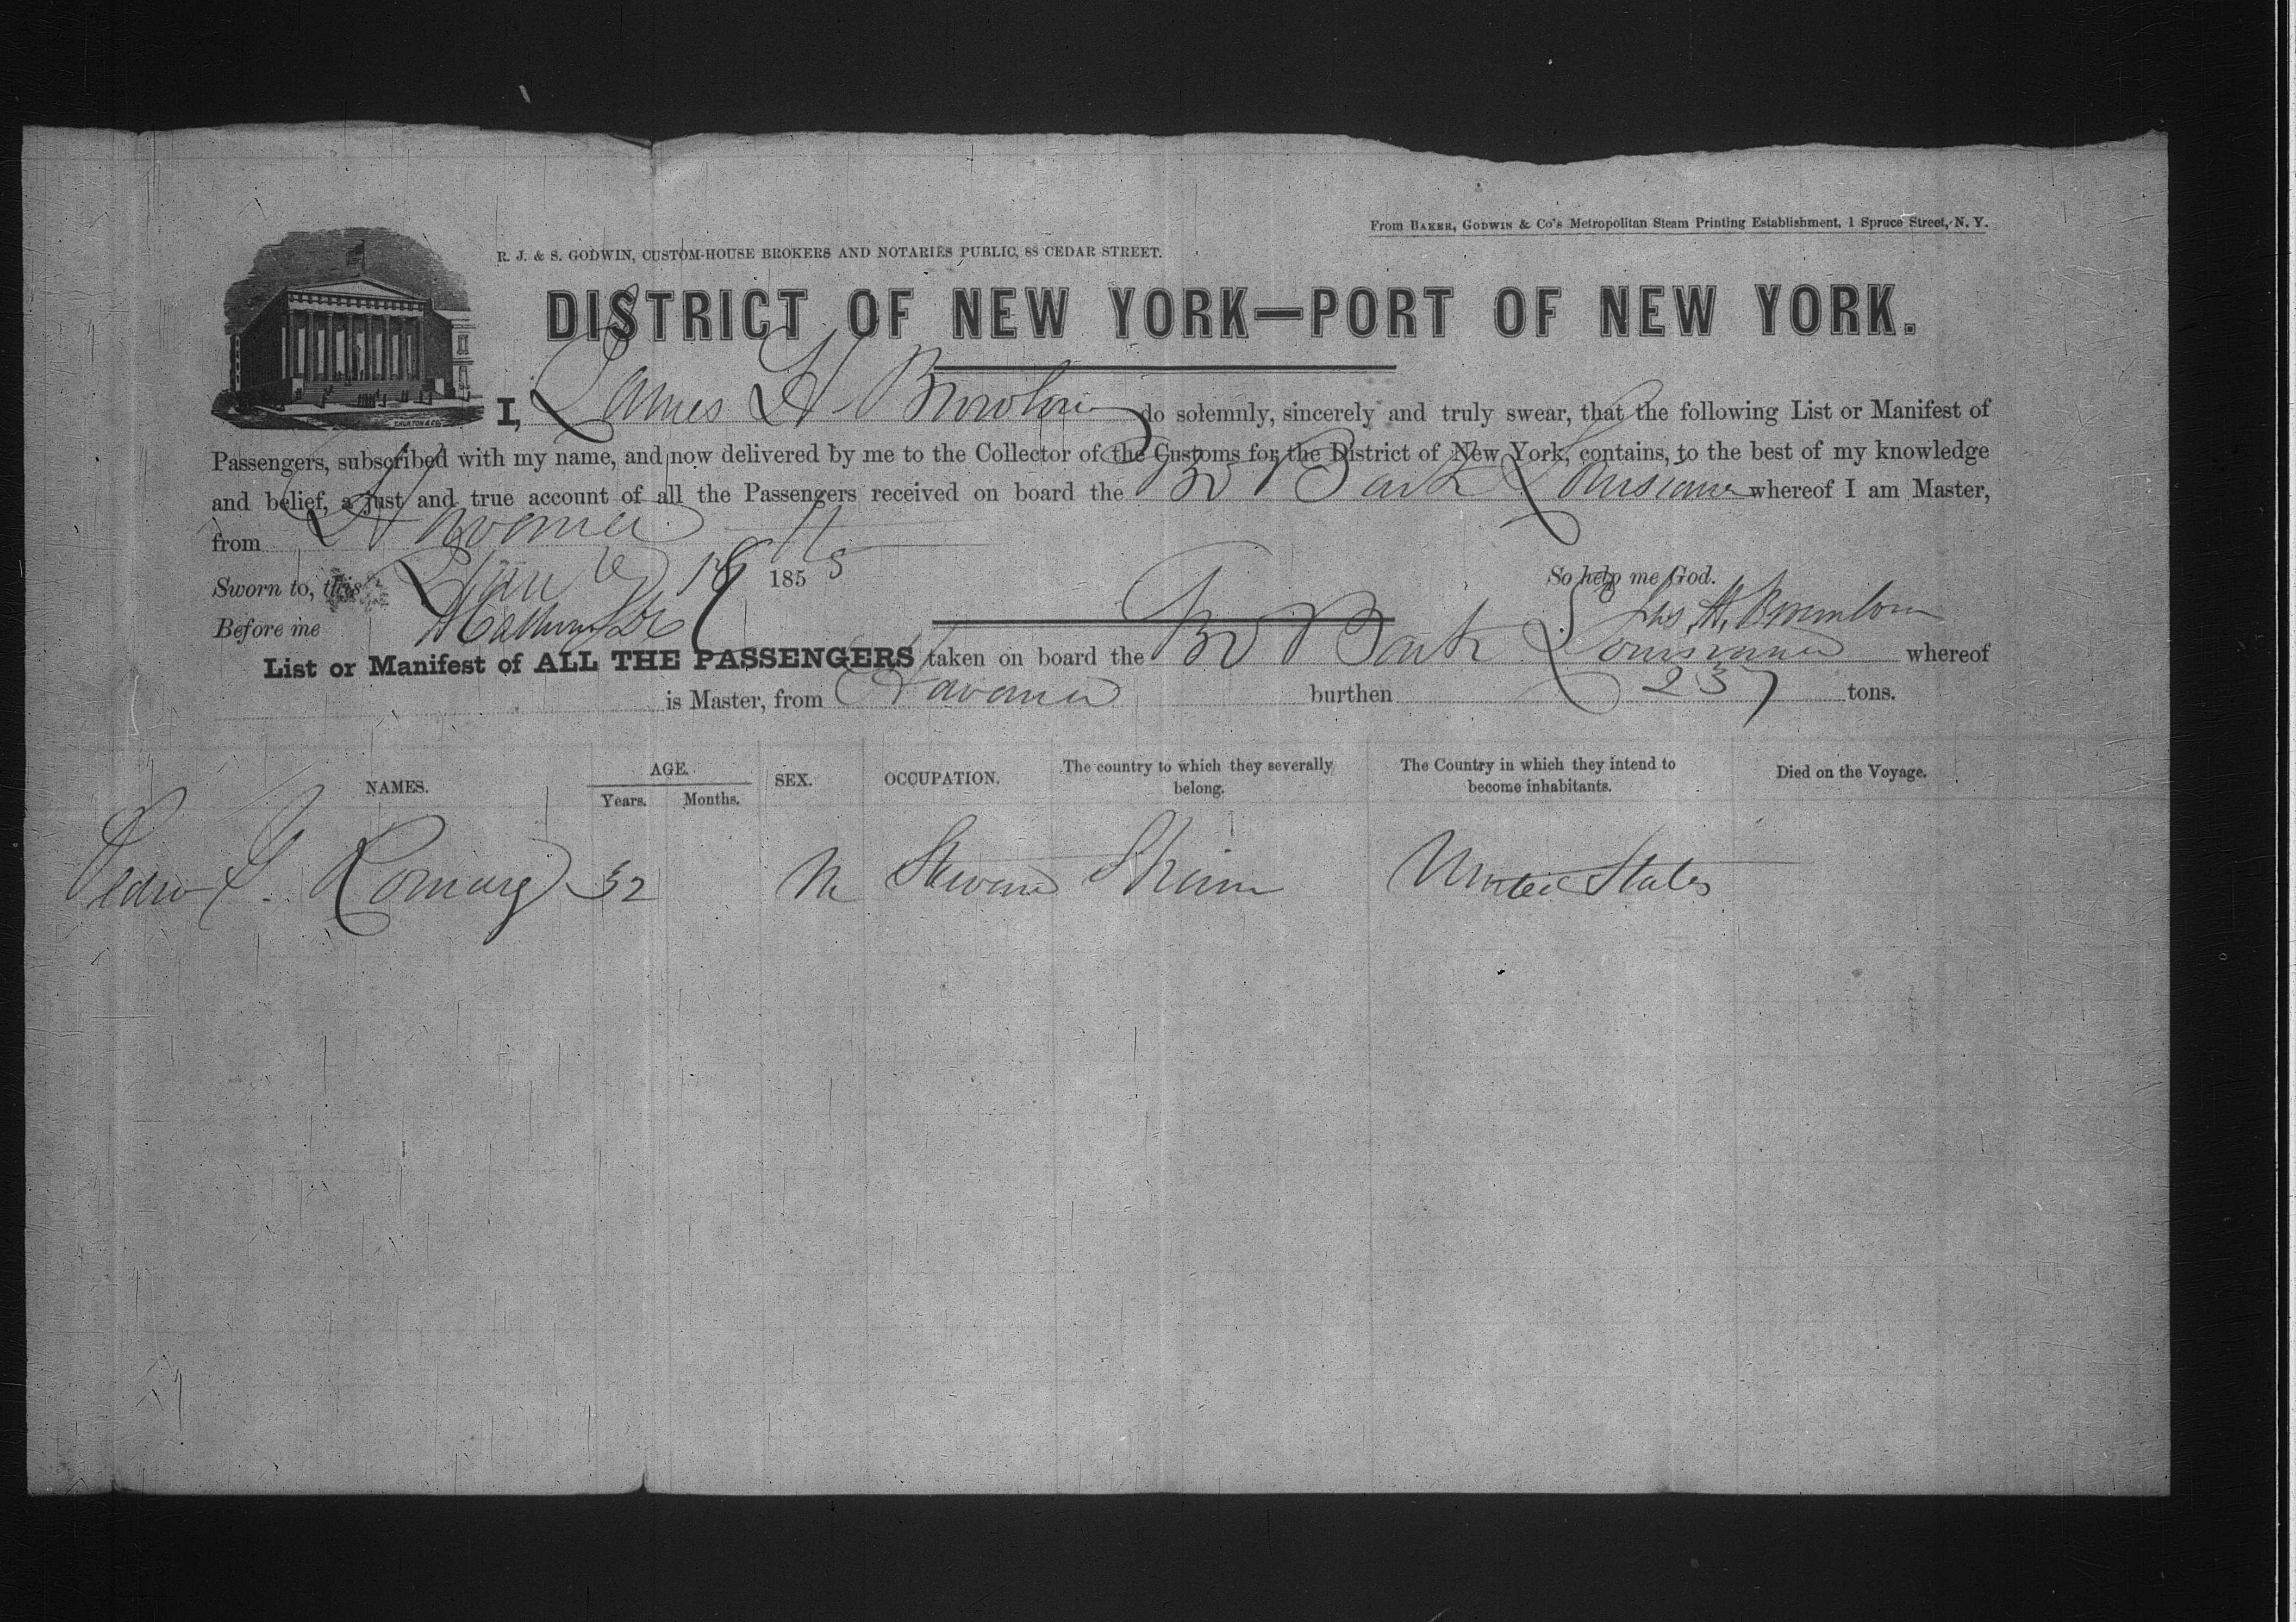 From BAKER, GODWIN & Co's Metropolitan Steam Printing Establishment, 1 Spruce Street, N. Y.
R. J. & S. GODWIN, CUSTOM-HOUSE BROKERS AND NOTARIES PUBLIC, 88 CEDAR STREET.
DISTRICT OF NEW YORK—PORT OF NEW YORK.
I, James H do solemnly, sincerely and truly swear, that the following List or Manifest of
Passengers, subscribed with my name, and now delivered by me to the Collector of the Customs for the District of New York, contains, to the best of my knowledge
and belief, a just and true account of all the Passengers received on board the Br Bark Louisiana whereof I am Master,
from Havana
Sworn to, this Jany 18 1855 So help me God.
Before me Jas. H.
List or Manifest of ALL THE PASSENGERS taken on board the Br Bark Louisiana whereof
is Master, from Havana burthen 237 tons.
NAMES. AGE. SEX. OCCUPATION. The country to which they severally belong. The Country in which they intend to become inhabitants. Died on the Voyage.
Years. Months.
Pedro 32 M United States